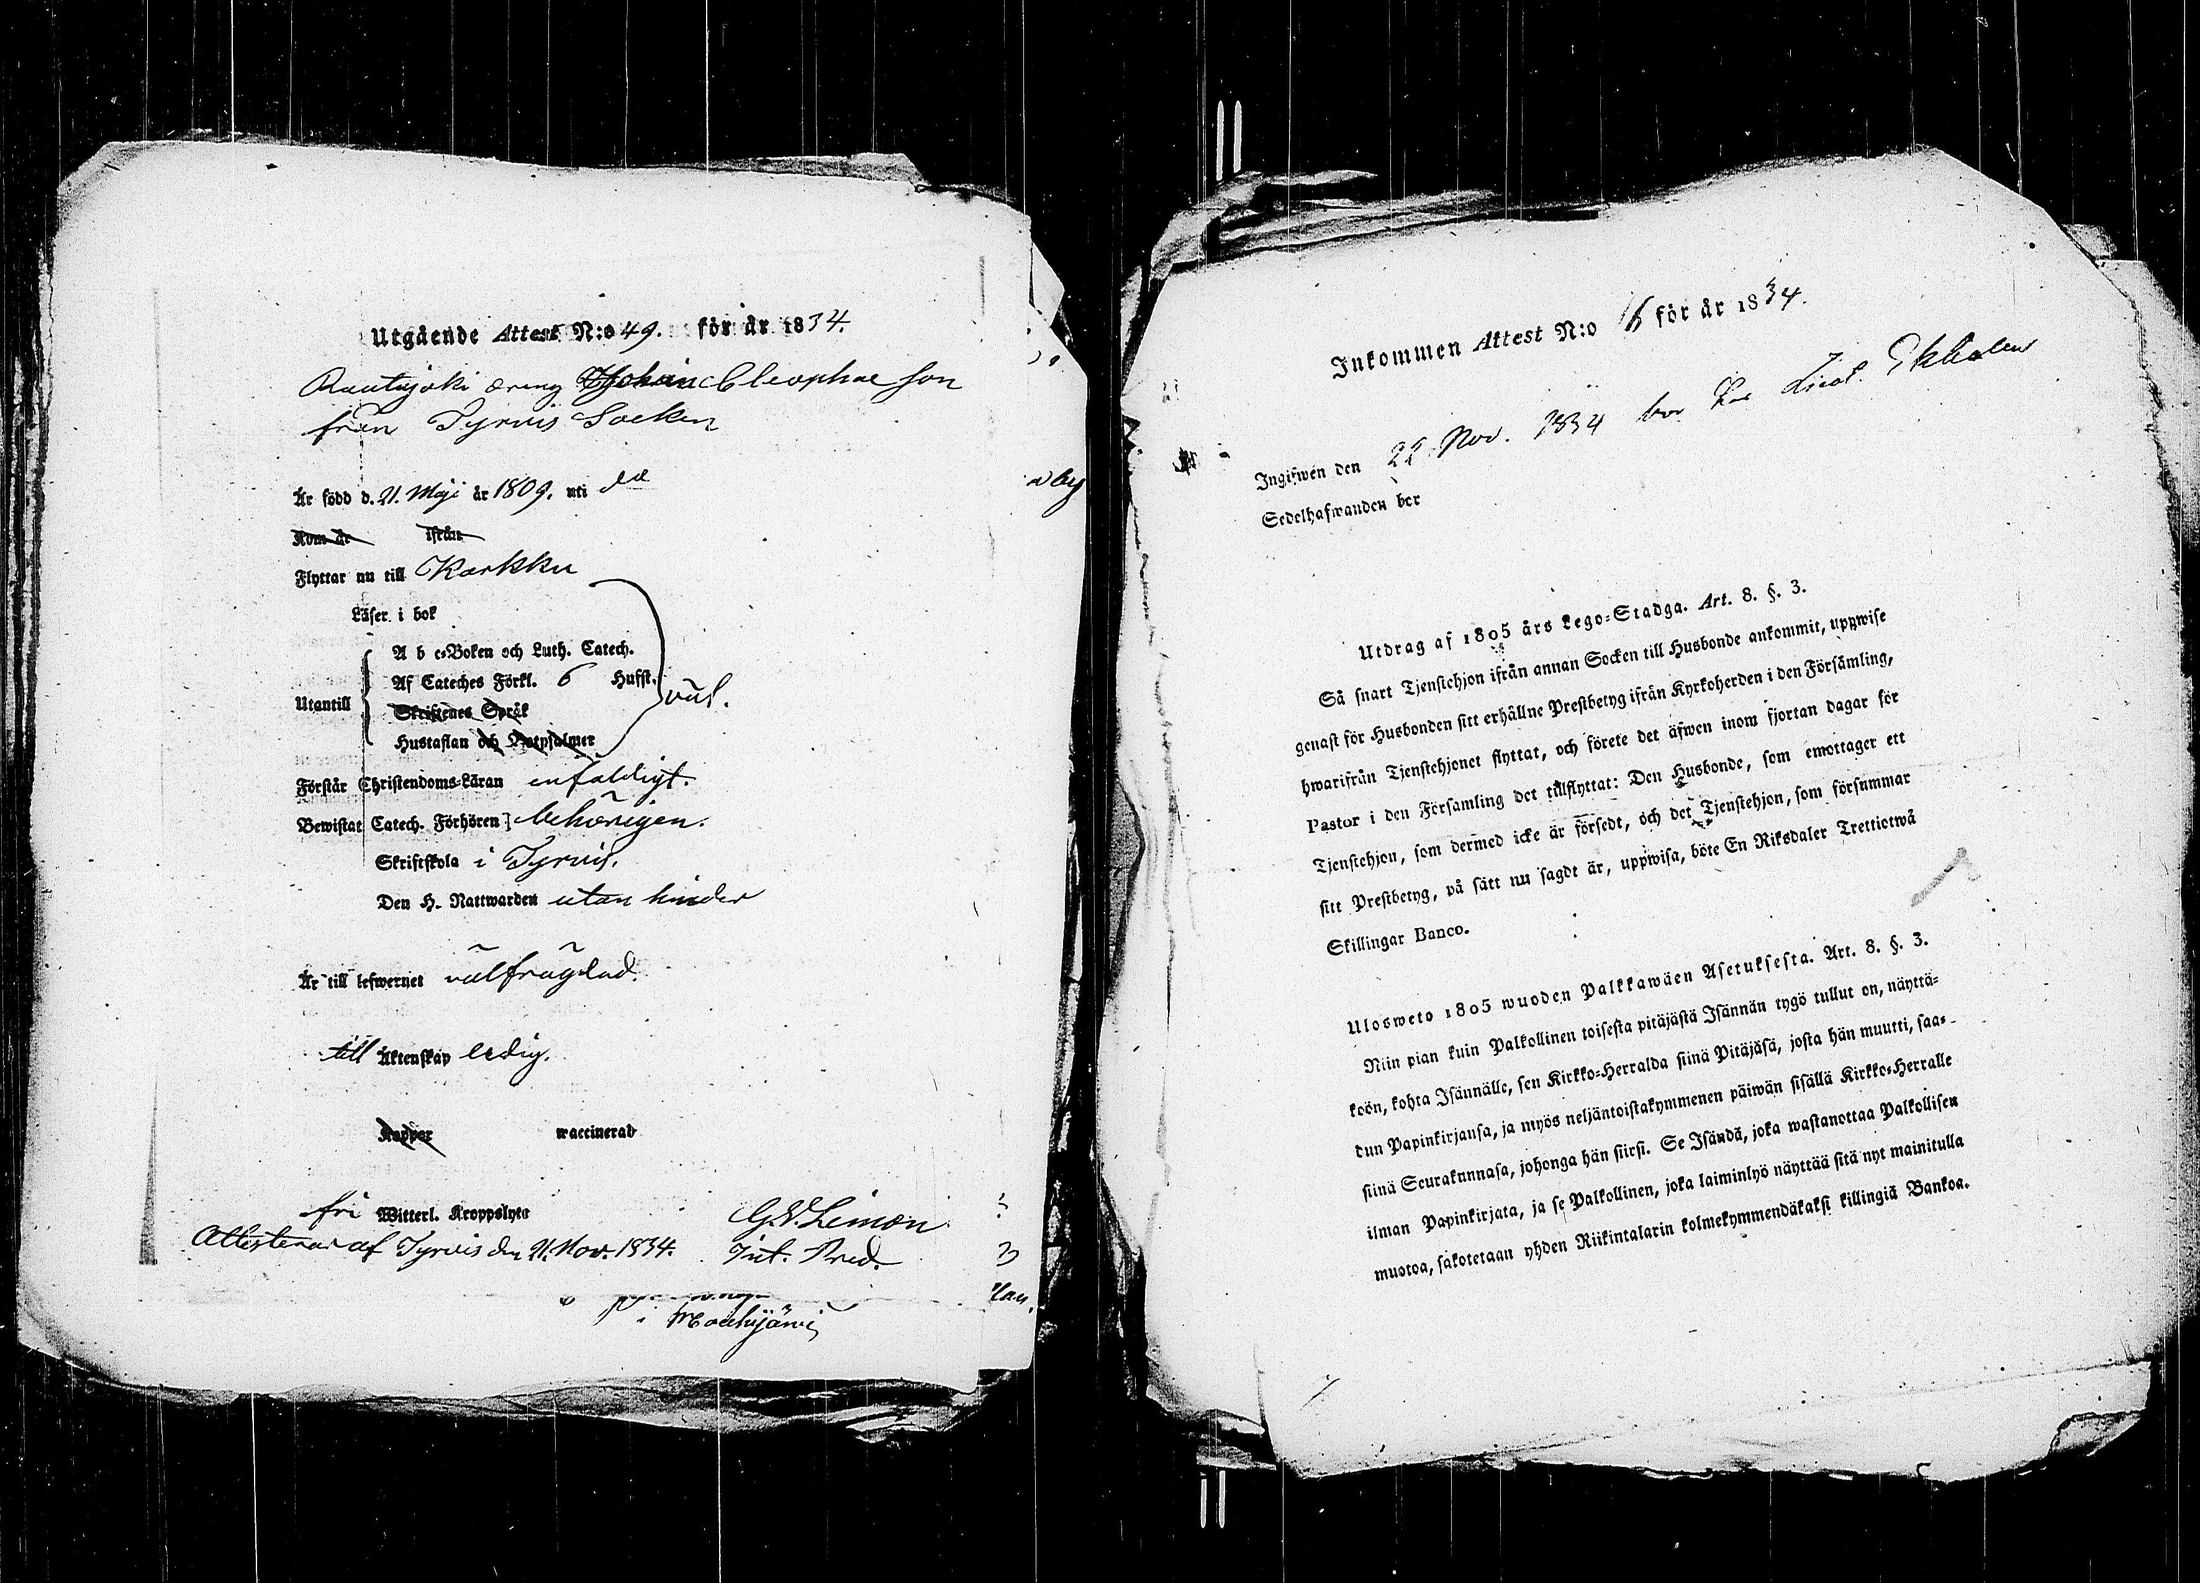 Utgående Attest N:o 49. för år 1834.
Rautajoki dräng Johan Cleophae son
från Tyrvis Socken
Är född d. 21. Maji år 1809. uti do
Kom år ifrån
Flyttar nu till Karkku
Läser i bok
A b c-Boken och Luth. Catech.
Af Cateches Förkl. 6 Hufst.
Utantill
väl.
Skriftenes Språk
Hustaflan och Botpsalmer
Förstår Christendoms-Läran enfaldigt.
Bewistat Catech. Förhören behörigen.
Skriftskola i Tyrvis.
Den H. Nattwarden utan hinder
Är till lefwernet välfrägdad.
till Äktenskap ledig.
Koppor waccinerad
fri Witterl. Kroppslyte
G. V. Limon
Attesterar af Tyrvis den 21. Nov. 1834. Int. Pred.
i Mouhijärvi
Inkommen Attest N:o 16 för år 1834.
Ingifwen den 22 Nov. 1834 bor hos Lieut. Ekholm
Sedelhafwanden bor
Utdrag af 1805 års Lego-Stadga. Art. 8. §. 3.
Så snart Tjenstehjon ifrån annan Socken till Husbonde ankommit, uppwise
genast för Husbonden sitt erhållne Prestbetyg ifrån Kyrkoherden i den Församling,
hwarifrån Tjenstehjonet flyttat, och förete det äfwen inom fjortan dagar för
Pastor i den Församling det tillflyttat: Den Husbonde, som emottager ett
Tjenstehjon, som dermed icke är försedt, och det Tjenstehjon, som försummar
sitt Prestbetyg, på sätt nu sagdt är, uppwisa, böte En Riksdaler Trettiotwå
Skillingar Banco.
Ulosweto 1805 wuoden Palkkawäen Asetuksesta. Art. 8. §. 3.
Niin pian kuin Palkollinen toisesta pitäjästä Isännän tygö tullut on, näyttä-
köön, kohta Isännälle, sen Kirkko-Herralda siinä Pitäjäsä, josta hän muutti, saa-
dun Papinkirjansa, ja myös neljäntoistakymmenen päiwän sisällä Kirkko-Herralle
siinä Seurakunnasa, johonga hän siirsi. Se Isändä, joka wastanottaa Palkollisen
ilman Papinkirjata, ja se Palkollinen, joka laiminlyö näyttää sitä nyt mainitulla
muotoa, sakotetaan yhden Riikintalarin kolmekymmendäkaksi killingiä Bankoa.